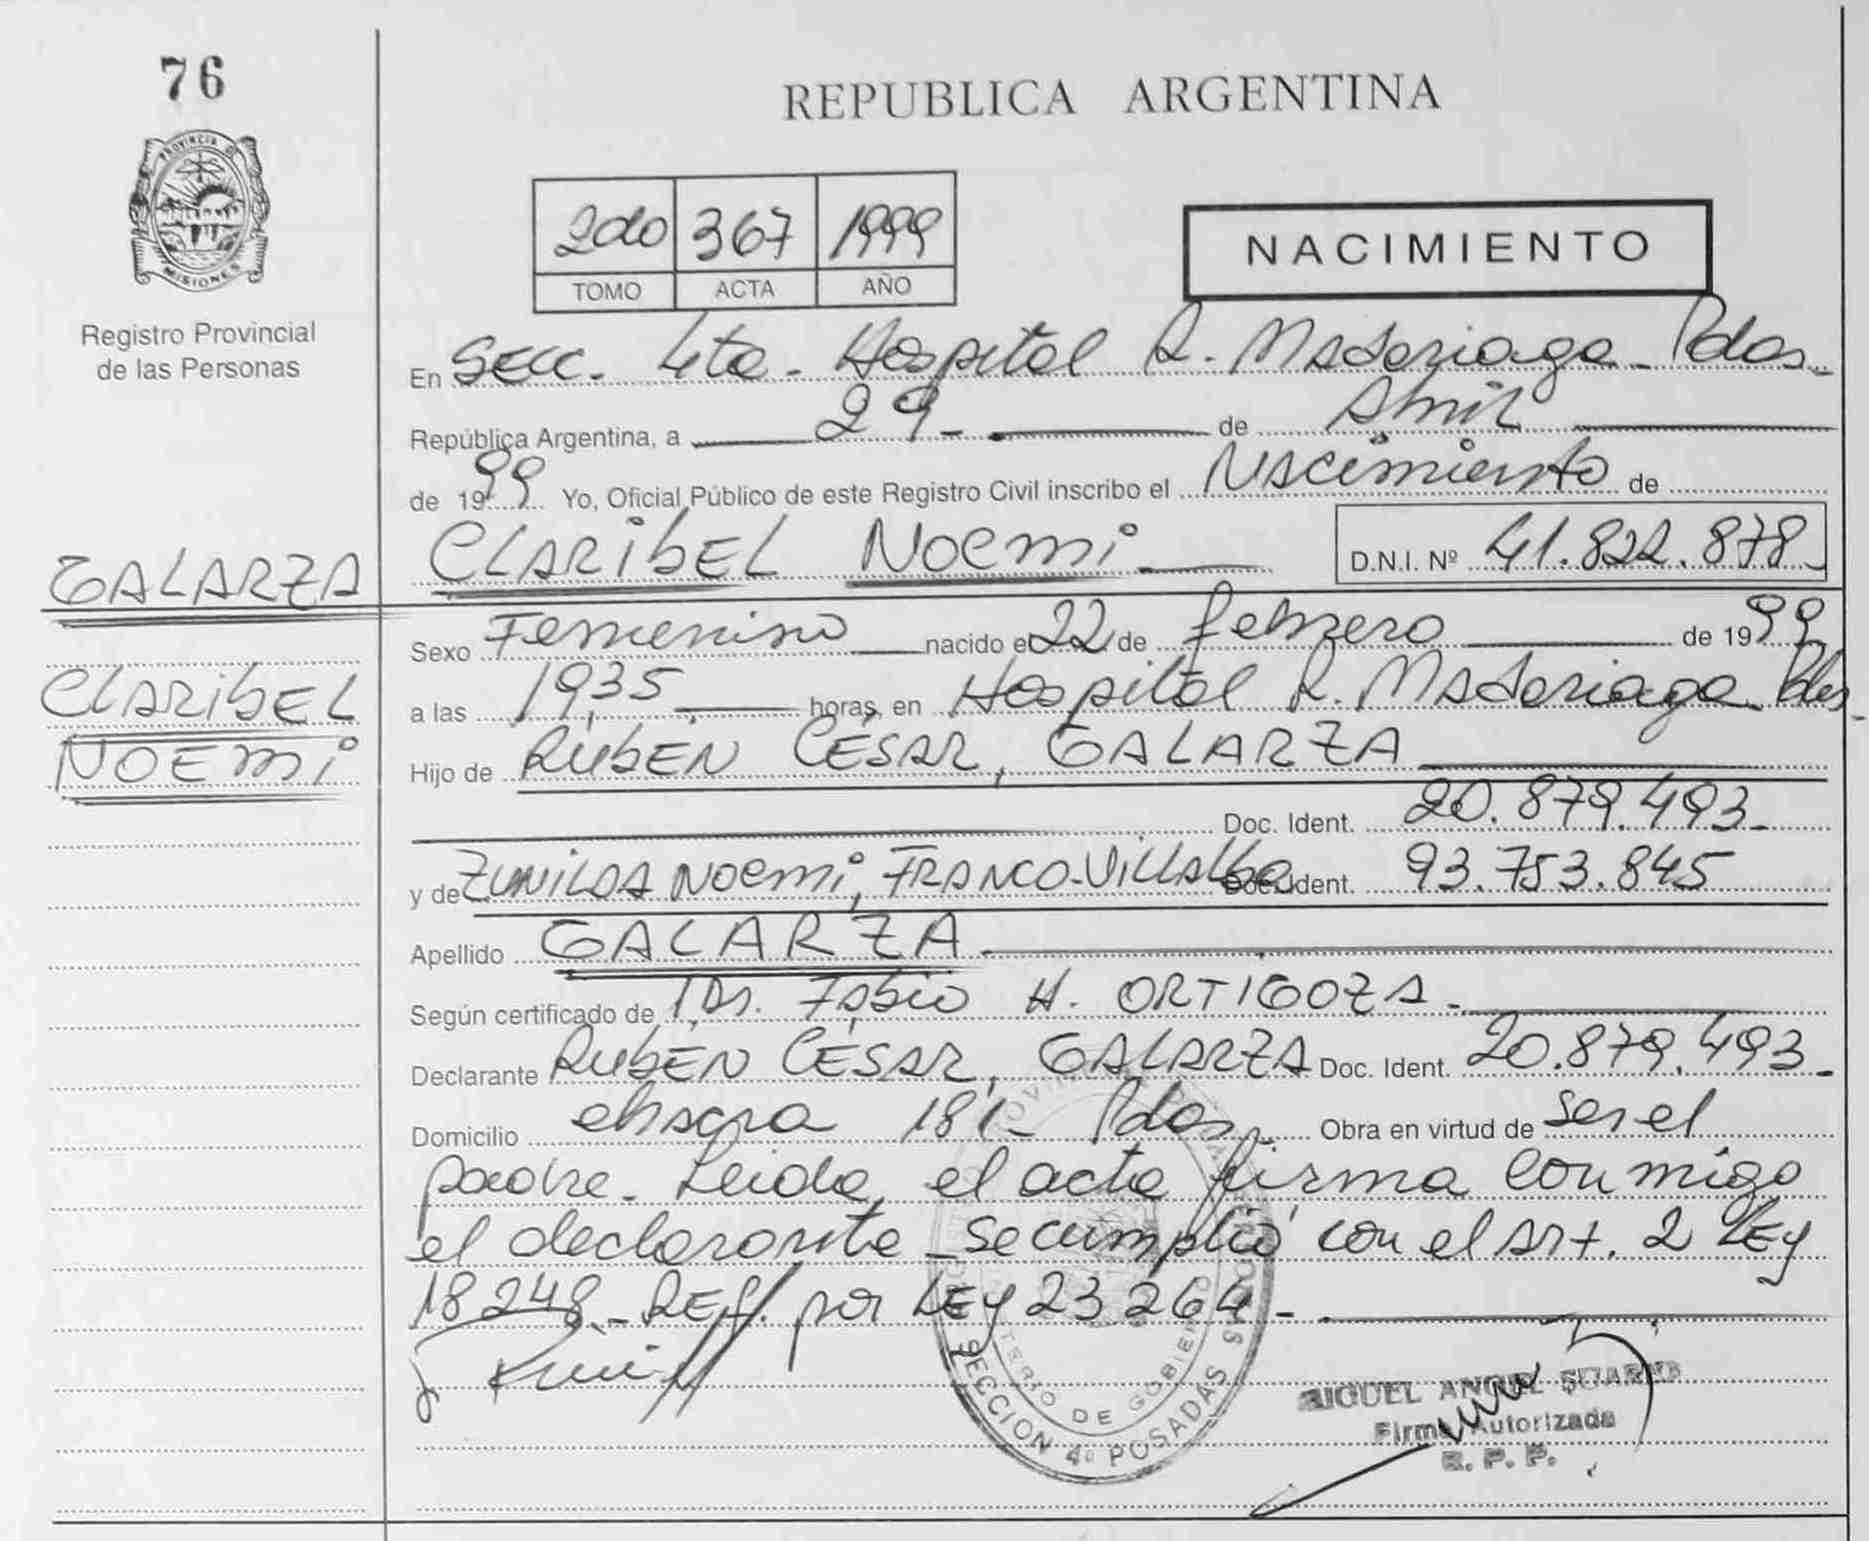 76
REPUBLICA ARGENTINA
PROVINCIA D
MISIONES
Registro Provincial
de las Personas
2do 367 1999
TOMO ACTA AÑO
NACIMIENTO
En Secc. 4ta. Hospital R. Madariaga - Pdas.
República Argentina, a 29 - de Abril
de 1999 Yo, Oficial Público de este Registro Civil inscribo el Nacimiento de
CLARIBEL NOEMI D.N.I. Nº 41.822.878
GALARZA
CLARIBEL
NOEMI
Sexo Femenino nacido el 22 de febrero de 1999
a las 19,35 horas, en Hospital R. Madariaga - Pdas.
Hijo de RUBEN CÉSAR, GALARZA
Doc. Ident. 20.879.493-
y de ZUNILDA NOEMI, FRANCO-VILLALBA Doc. Ident. 93.753.845
Apellido GALARZA
Según certificado de Dr. Fabio H. ORTIGOZA -
Declarante RUBEN CÉSAR, GALARZA Doc. Ident. 20.879.493-
Domicilio 181 - Pdas. Obra en virtud de ser el
padre. Leida el acta firma conmigo
el declarante - Se cumplió con el Art. 2 LEY
18248 - REf. por LEY 23264 -
SECCION 4º POSADAS
DE GOBIERNO
MIGUEL ANGEL SUAREZ
Firma Autorizada
R. P. P.